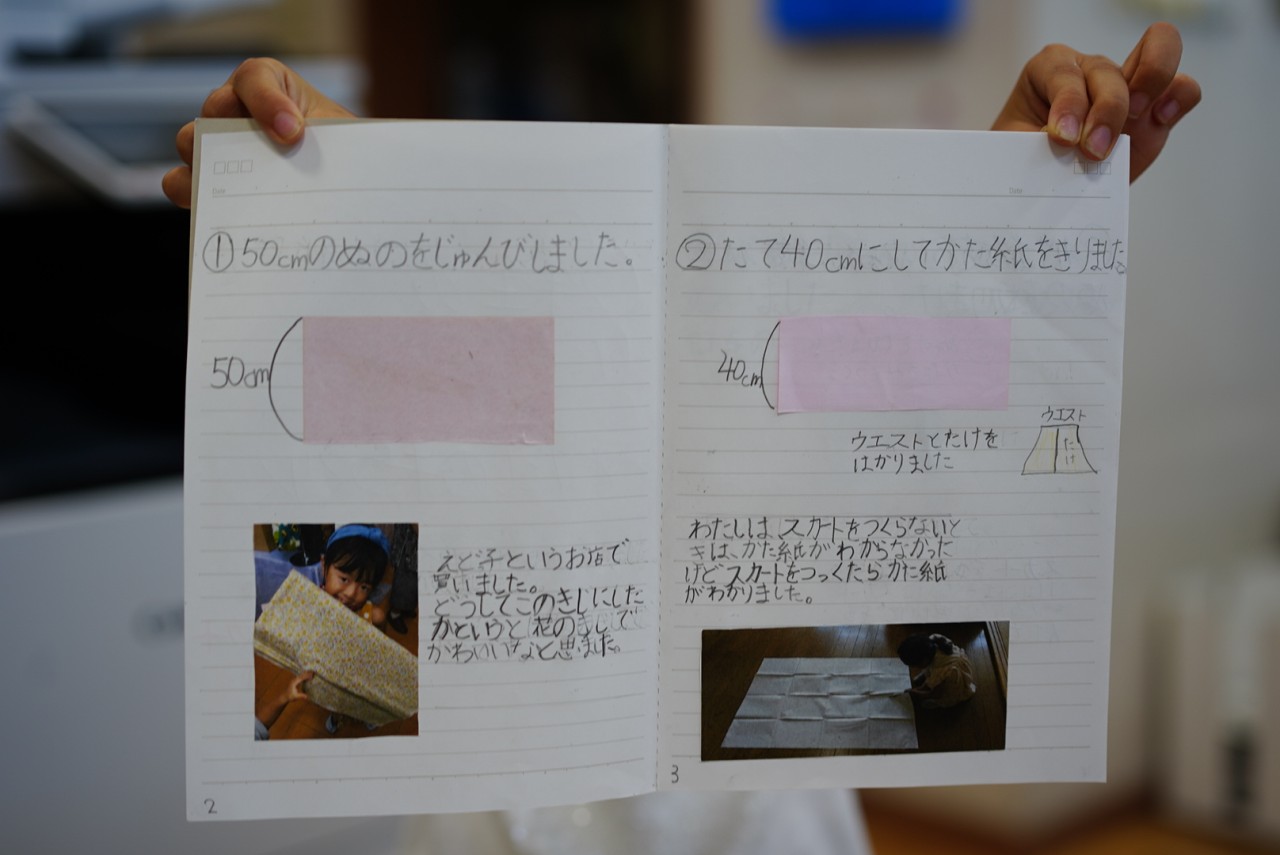 Date
①50cmのぬのをじゅんびしました。
50cm
えど子というお店で
買いました。
どうしてこのきじにした
かというと花のきじで
かわいいなと思ました。
2
Date
②たて40cmにしてかた紙をきりました
40cm
ウエスト
たけ
ウエストとたけを
はかりました
わたしは、スカートをつくらないと
きは、かた紙がわからなかった
けどスカートをつっくたらかた紙
がわかりました。
3